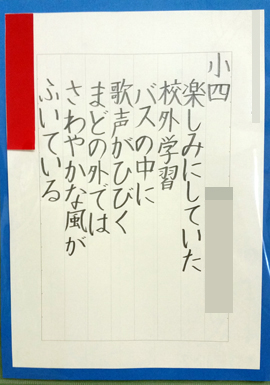 小四
楽しみにしていた
校外学習
バスの中に
歌声がひびく
まどの外では
さわやかな風が
ふいている